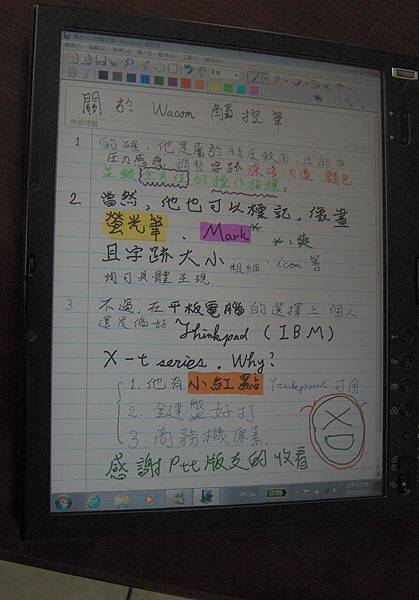 關於 Wacom 觸控筆
1 的確，他是屬於精度較高，且能由
壓力感應，調整字跡深淺、內邊、顏色
並較全方面的操作指標。
2. 當然，他也可以標記，像畫
螢光筆、Mark * *:爽
且字跡大小 粗細、icom 等
均可具體呈現
3. 不過，在平板電腦的選擇上個人
還是偏好 Thinkpad (IBM)
X-t series. Why?
1. 他有小紅點 Trackpoint 可用
2. 鍵盤好打
3. 商務機原素.
XD
感謝Ptt版友的收看